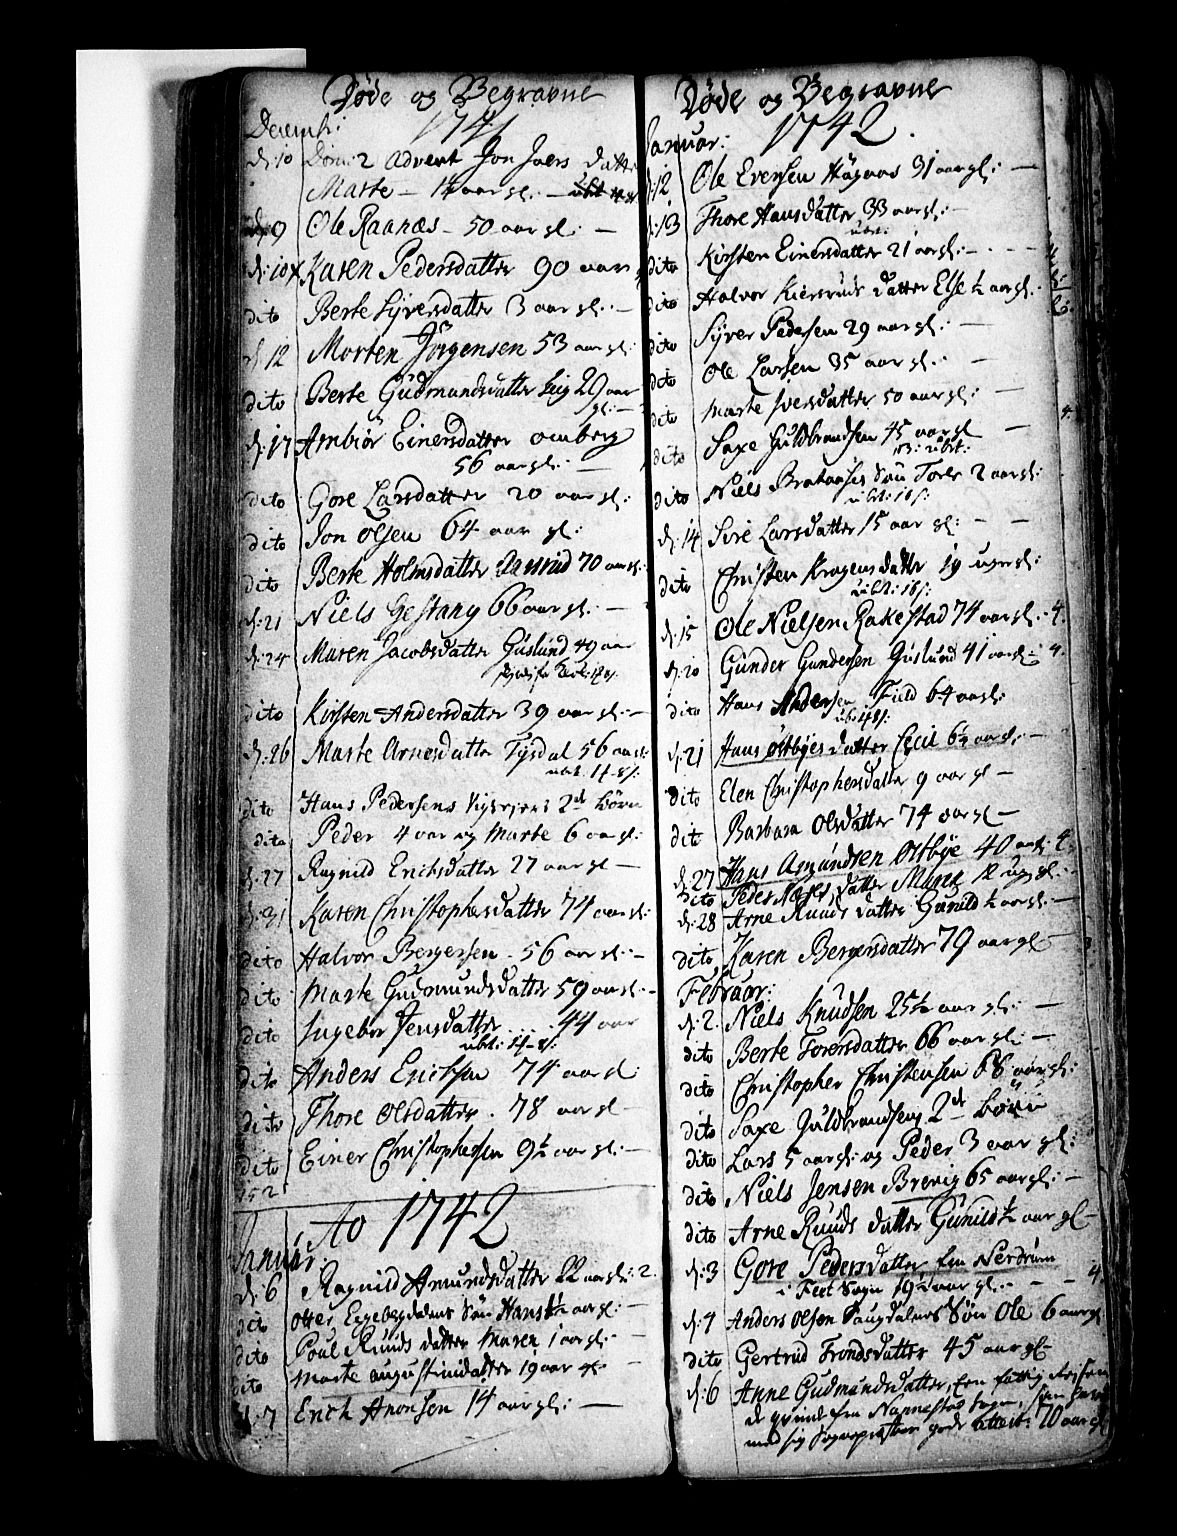 Døde og Begravne
Decembr: 1741
d: 10 Dom: 2 Advent Jon Joers datter
Marte - 14 aar gl: —
d: 9 Ole Raanæs - 50 aar gl: —
d: 10 Karen Pedersdatter 90 aar
dito Berte Syversdatter 3 aar gl: —
d: 12 Morten Jørgensen 53 aar gl:
dito Berte Gudmundsdatter 29 aar
gl: —
d: 17 Ambiør Einersdatter omberg
56 aar gl: —
dito Gore Larsdatter 20 aar gl:
dito Jon Olsen 64 aar gl:
dito Berte Holmsdatter 70 aar gl:
d: 21 Niels Gestang 66 aar gl: —
d: 24 Maren Jacobsdatter Guslund 49 aar
dito Kirsten Andersdatter 39 aar gl: —
d: 26 Marte Arnesdatter Tysdal 56 aar gl:
dito Hans Pedersens 2de børn
dito Peder 4 aar og Marte 6 aar gl:
d: 27 Ragnild Erichsdatter 27 aar gl —
d: 31 Karen Christophersdatter 74 aar gl:
dito Halvor Bergersen - 56 aar gl: —
dito Marte Gudmundsdatter 59 aar gl: —
dito Ingebor Jensdatter .... 44 aar
dito Anders Erichsen 74 aar gl
dito Thore Olsdatter . 78 aar gl —
dito Einer Christophersen 9½ aar gl: —
152
Ao 1742
Januar:
d: 6 Ragnild Amundsdatter 22 aar gl: 2
dito Otter Eggebygdalens Søn Hans ½ aar gl: —
dito Poul Ruuds datter Maren 1 aar gl:
dito Marte Augustinidatter 19 aar gl —
d: 7 Erich Aronsen 14 aar gl: —
Døde og Begravne
Januar: 1742.
d: 12 Ole Evensen Høgaas 31 aar gl: —
d: 13 Thore Hansdatter 33 aar gl: —
dito Kirsten Einersdatter 21 aar gl: -
dito Halvor Kiersruds datter Else ½ aar gl:
dito Syver Pedersen 29 aar gl: —
dito Ole Larsen 35 aar gl: —
dito Marte Iversdatter 50 aar gl: —
dito Saxe Guldbrandsen 45 aar gl —
dito Niels Brataases Søn Tore 2 aar gl:
d: 14 Siri Larsdatter 15 aar gl: —
dito Christen Krogens datter 19 uger gl:
d: 15 Ole Nielsen Rakestad 74 aar gl: 4.
d: 20 Gunder Gundersen Guslund 41 aar gl: 4.
dito Hans Andersen Field 64 aar gl:
d: 21 Hans Østbyes datter Cecil 6½ aar gl: —
dito Elen Christophersdatter 9 aar gl —
dito Barbara Olsdatter 74 aar gl —
d: 27 Hans Asmundsen Østbye 40 aar gl 4.
dito Peder Næses datter Maren 12 uger gl: —
d: 28 Arne Ruuds datter Gunild ½ aar gl: —
dito Karen Bergersdatter 79 aar gl —
Februar:
d: 2. Niels Knudsen 25½ aar gl: —
dito Berte Toresdatter 66 aar gl: —
dito Christopher Christensen 68 aar gl:
dito Saxe Guldbrandsens 2de børn
dito Lars 5 aar gl: og Peder 3 aar gl:
dito Niels Jensen Brevig 65 aar gl: —
dito Arne Ruuds datter Gunild ½ aar gl —
d: 3 Gore Pedersdatter fra Nerdrum
i Feet Sogn 19½ aar gl: — - - 4.
d: 4 Anders Olsøn Haugdalens Søn Ole 6 aar gl
dito Gertrud Trondsdatter 45 aar gl —
d: 6 Anne Gudmundsdatter, Een fattig
fra Nannestad Sogn,
med sig Sognepræstens gode attest: 70 aar gl